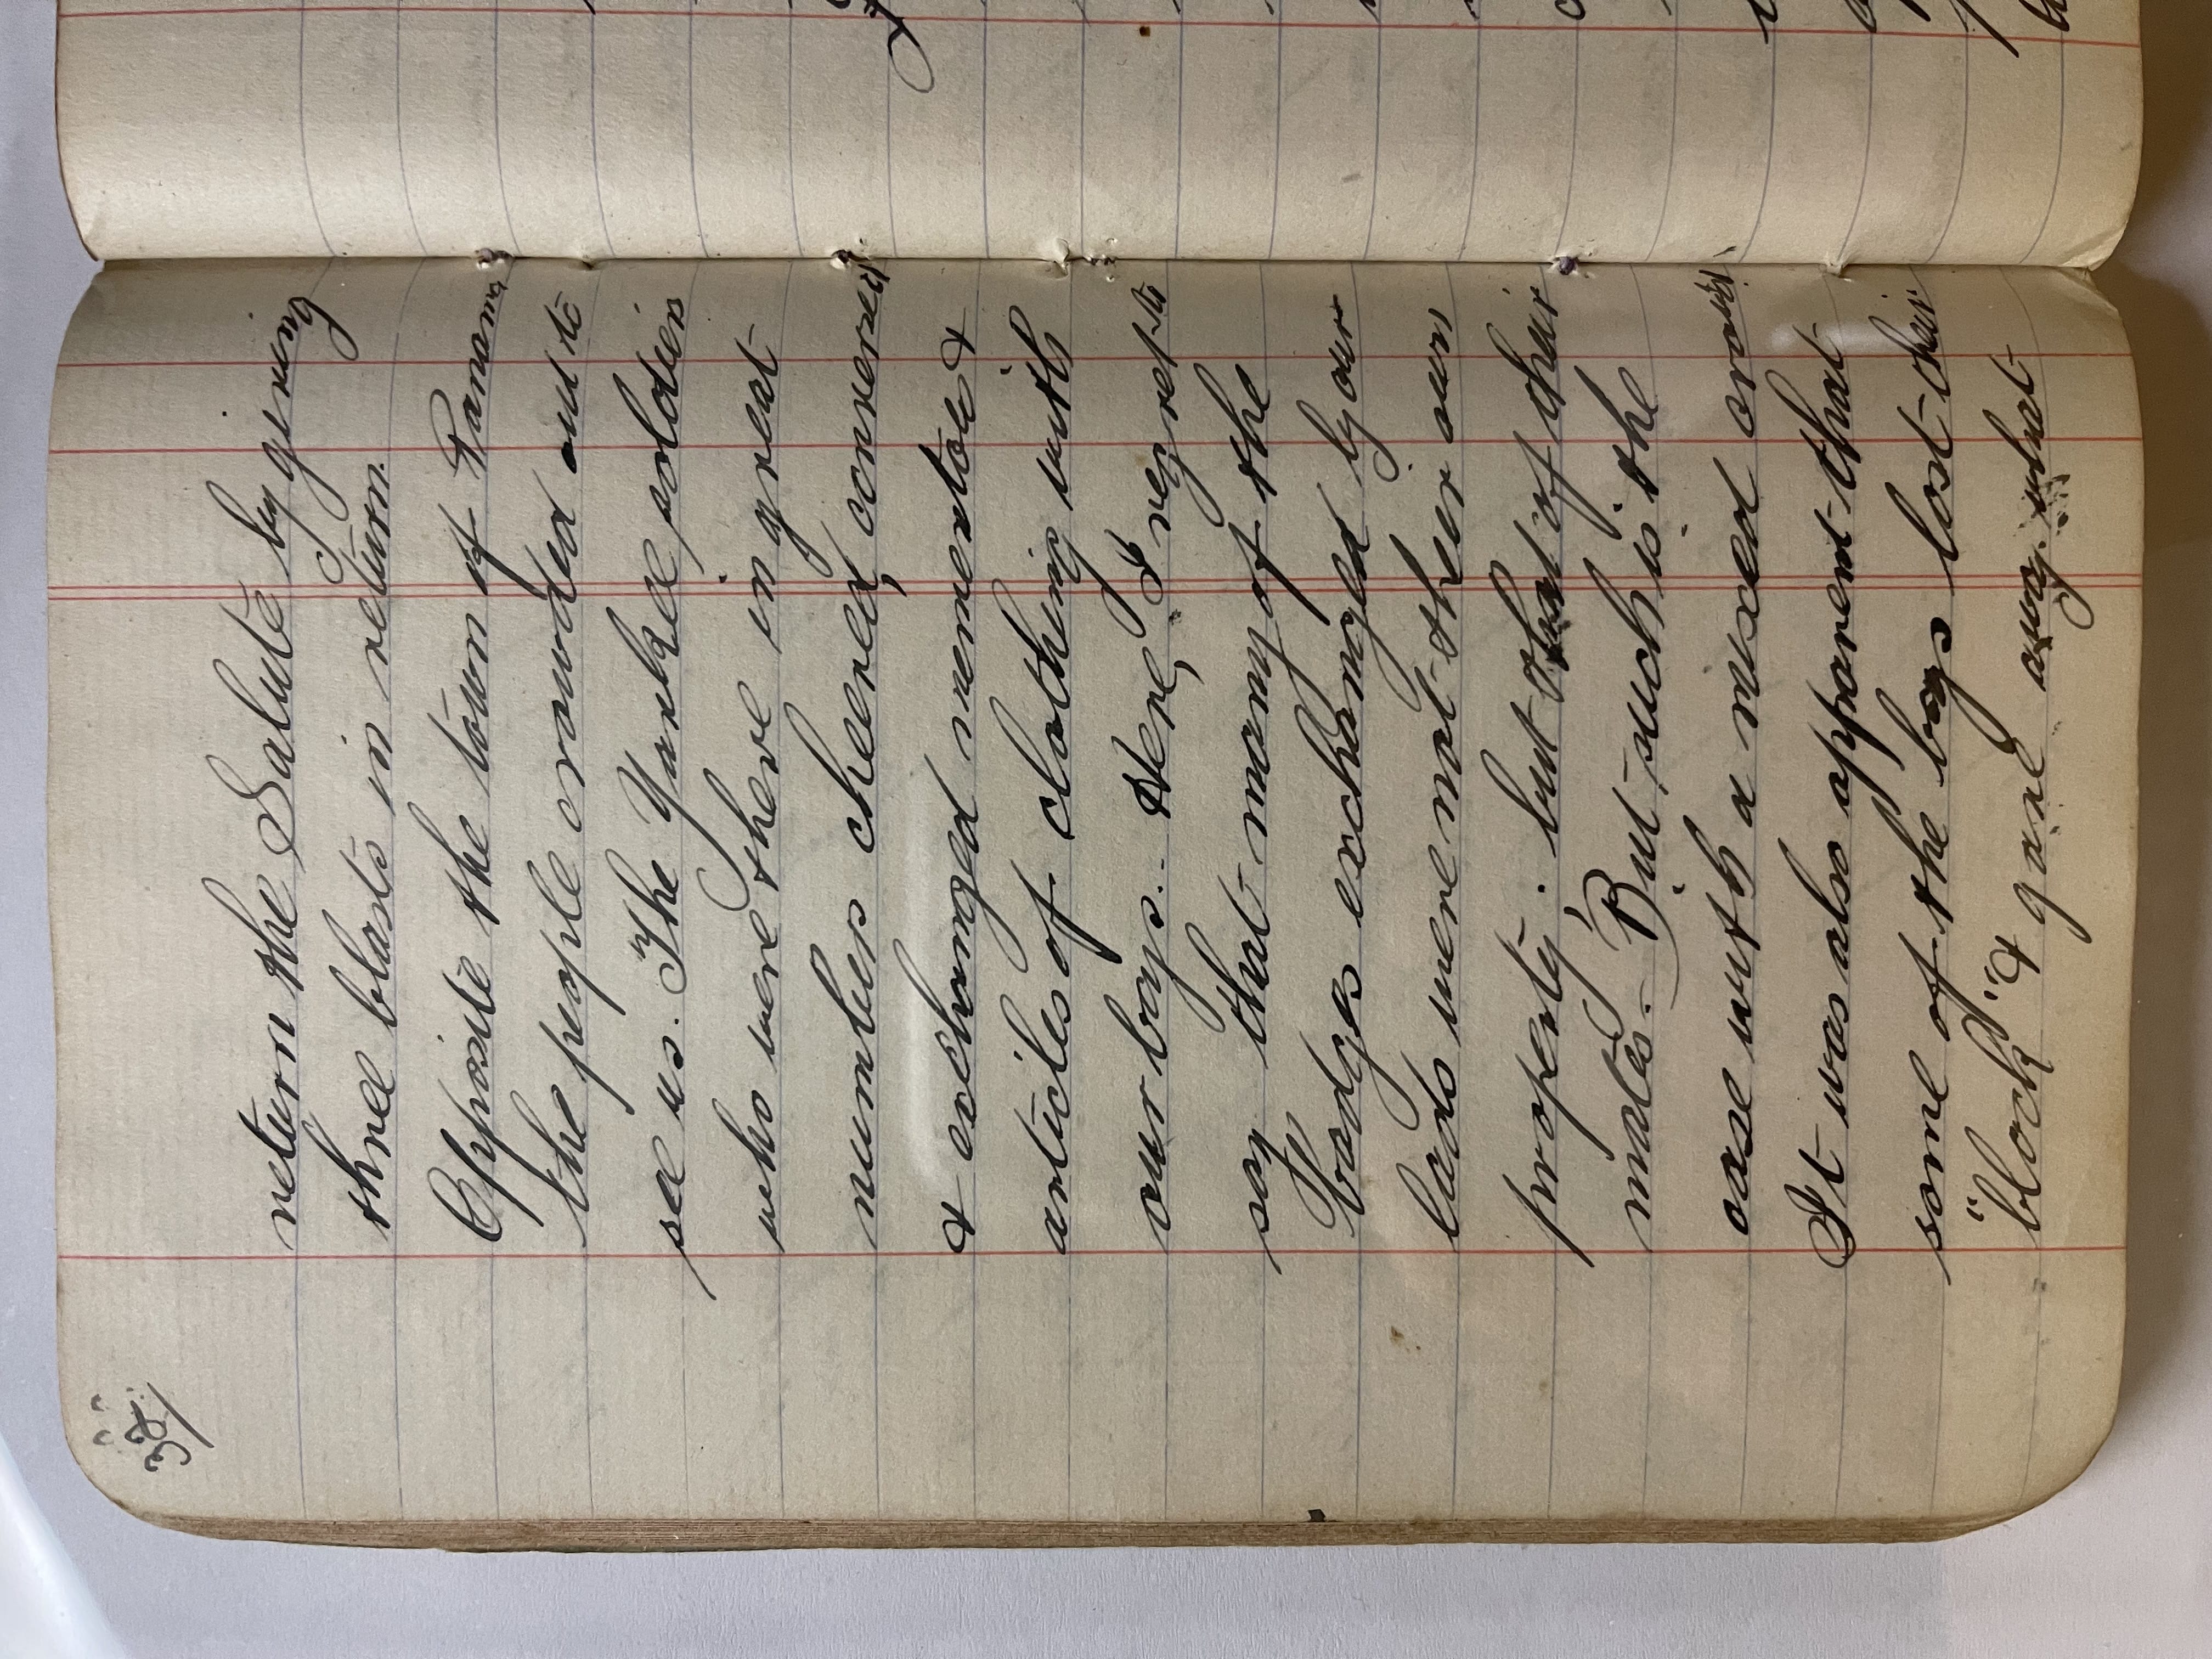 38.
return the Salute by giving
three blasts in return.
Opposite the town of Panama
the people crowded out to
see us. The Yankee soldiers
who were there in great
numbers cheered, conversed
& exchanged mementoes &
articles of clothing with
our boys. Here, I regret to
say that many of the
badges exchanged by our
lads were not their own
property. but that of their
mates. But such is the
case with a mixed crowd
It was also apparent that
some of the boys lost their
"block" & gave away what